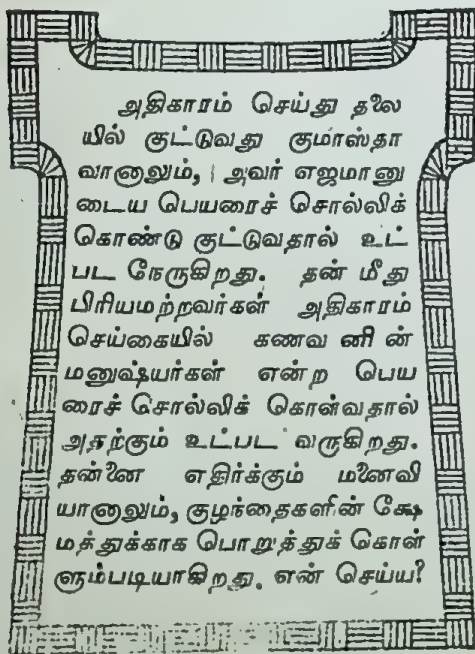 அதிகாரம் செய்து தலை
யில் குட்டுவது குமாஸ்தா
வானாலும், அவர் எஜமானு
டைய பெயரைச் சொல்லிக்
கொண்டு குட்டுவதால் உட்
பட நேருகிறது. தன் மீது
பிரியமற்றவர்கள் அதிகாரம்
செய்கையில் கணவ னி ன்
மனுஷ்யர்கள் என்ற பெய
ரைச் சொல்லிக் கொள்வதால்
அதற்கும் உட்பட வருகிறது.
தன்னை எதிர்க்கும் மனைவி
யானாலும், குழந்தைகளின் க்ஷே
மத்துக்காக பொறுத்துக் கொள்
ளும்படியாகிறது. என் செய்ய?